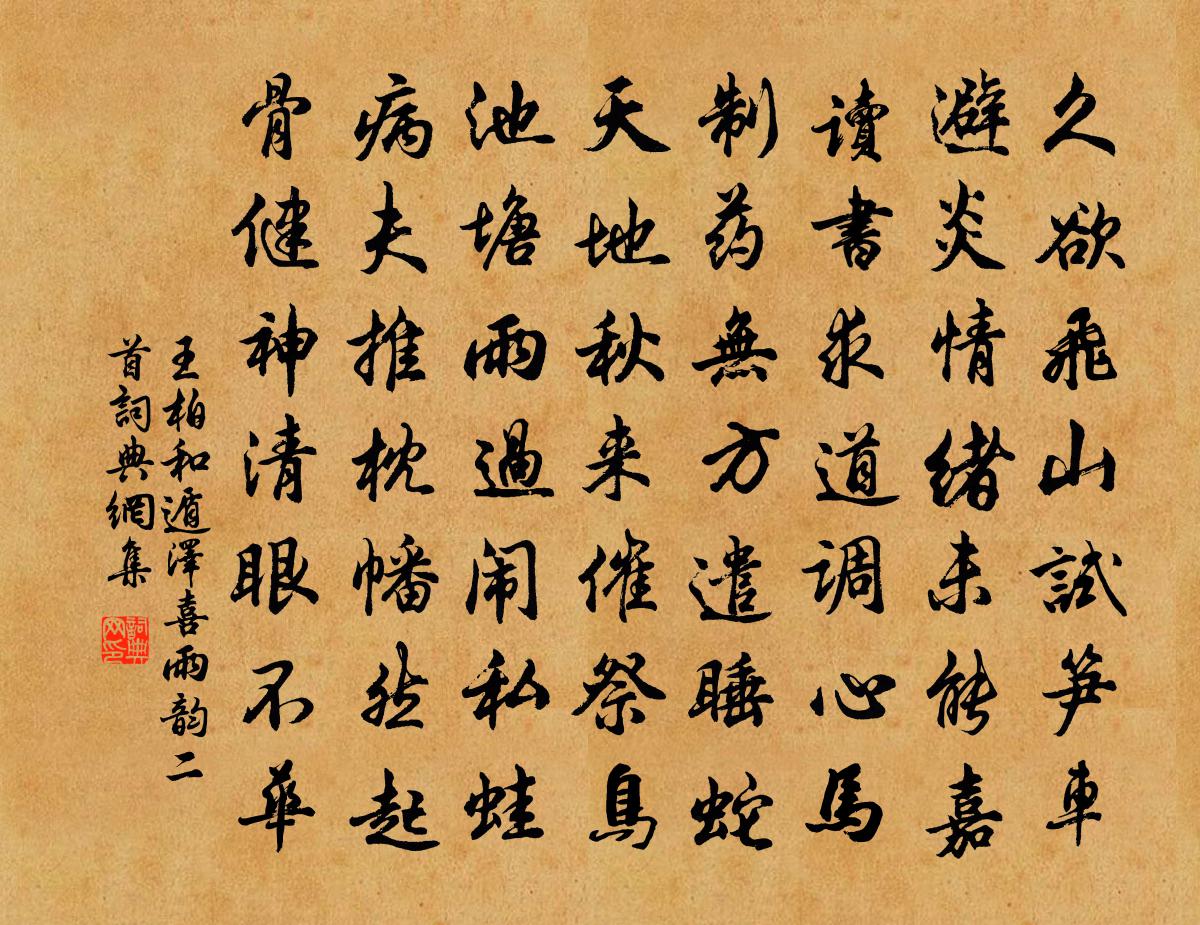 久欲飛山試笋車
避炎情緒未能嘉
讀書求道调心馬
制药無方遣睡蛇
天地秋来催祭鳥
池塘雨過闹私蛙
病夫推枕幡然起
骨健神清眼不華
王柏和遁澤喜雨韵二
首詞典網集
詞典
网印